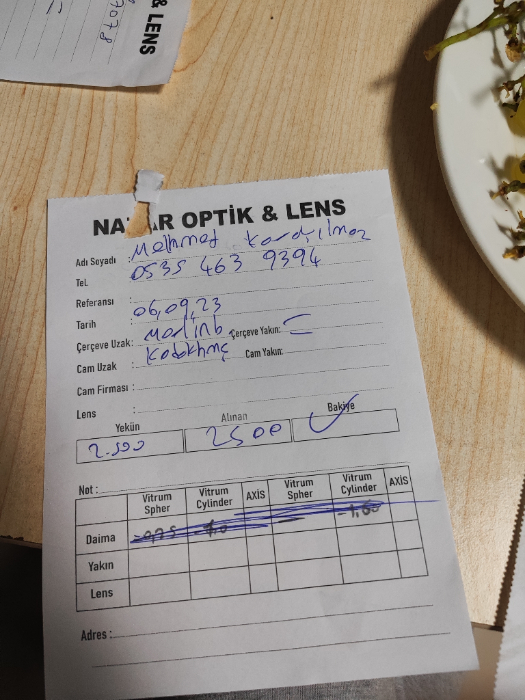 & LENS
7078
NA AR OPTİK & LENS
Adı Soyadı : Mehmet
Tel. 0535 463 9394
Referansı :
Tarih : 06,09,23
Çerçeve Uzak: Çerçeve Yakın:
Cam Uzak : Cam Yakın:
Cam Firması :
Lens :
Yekün Alınan Bakiye
2.500 2500 ✓
Not :
Vitrum Spher Vitrum Cylinder AXİS Vitrum Spher Vitrum Cylinder AXİS
Daima -0,75 -1,0 -1,00
Yakın
Lens
Adres :